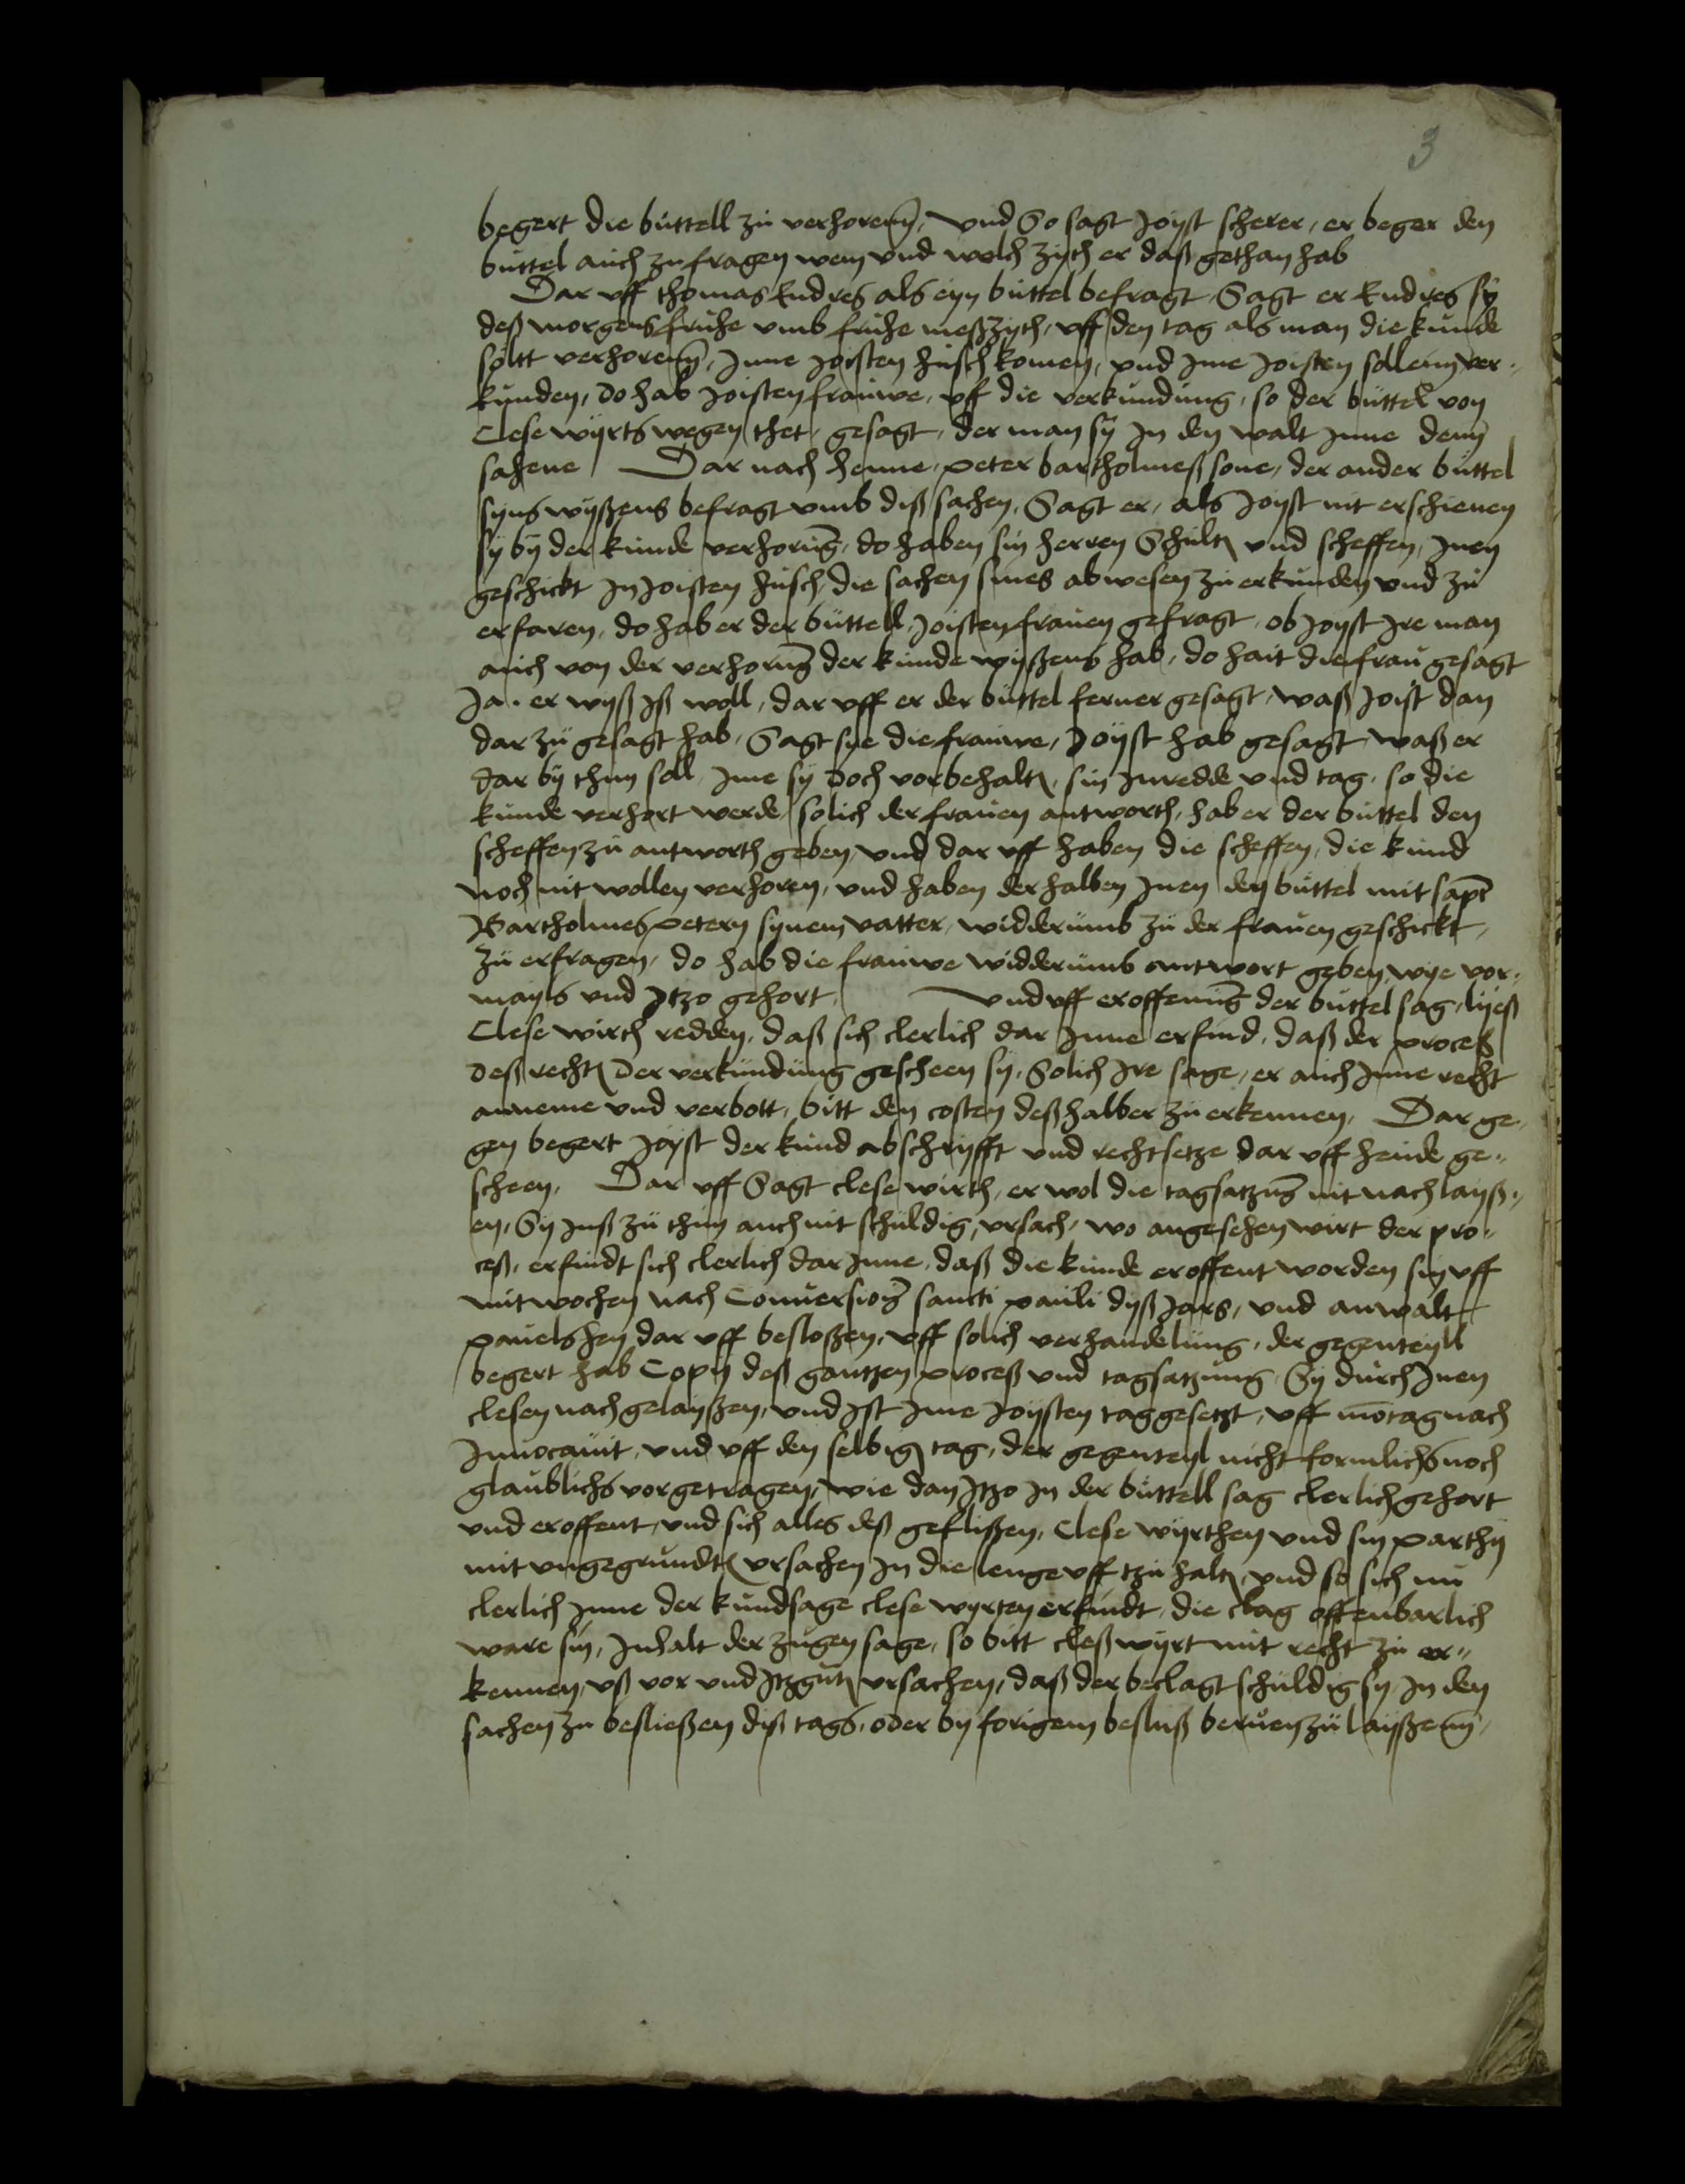 3
begert die büttell zü verhorenn, vnd So sagt Joyst scherer, er beger den
büttel aüch zufragen wem vnd welch zyth er daß gethan hab
Dar vff thomas Endres als eyn büttel befragt, Sagt er Endres sy
deß morgens frühe vmb frühe meßzyth, vff den tag als man die künde
soltt verhorenn, Jnne Joisten hüsch komen, vnd Jme Joisten sollenn ver-
künden, do hab Joisten fraüwe, vff die verkündüng, so der büttel von
Clese wyrts wegen thet, gesagt, der man sy Jn den walt Jnne denn
sahene Dar nach henne, peter bartholmeß sone, der ander büttel
syns wyßens befragt vmb diß sachen, Sagt er, als Joyst nit erschienen
sy by der künde verhorüng, do haben sin herren Schülten vnd scheffen, Jnen
geschickt Jn Joisten hüsch, die sachen sines abwesen zü erkünden vnd zü
erfaren, do hab er der büttell, Joisten fraüen gefragt, ob Joyst Jre man
aüch von der verhorung der künde wyßens hab, do hait die fraü gesagt
Ja. er wyß Jß woll, dar vff er der büttel ferner gesagt, waß Joist dan
dar zü gesagt hab, Sagt sye die fraüwe, Joyst hab gesagt waß er
dar by thun soll, Jme sy doch vorbehalten, sin Jnredde vnd tag, so die
künde verhort werde, solich der fraüen antworth, hab er der büttel den
scheffen zü antworth geben, vnd dar vff haben die scheffen, die künd
noch nit wollen verhoren, vnd haben derhalben Jnen den büttel mit sapt
Bartholmes petern synem vatter, widderümb zü der fraüen geschickt,
zü erfragen, do hab die fraüwe widderümb antwort geben, wye vor-
mayls vnd Jtzo gehort, vnd vff eroffenüng der büttel sag, lyeß
Clese wirth redden, daß sich clerlich dar Jnne erfind, daß der proceß
deß rechten der verkündüng gescheen sy, Solich Jre sage, er aüch Jnne recht
anneme vnd verbott, bitt den costen deßhalber zü erkennen, Dar ge-
gen begert Joyst der künd abschryfft vnd rechtsetze dar vff heüde ge-
scheen, Dar vff Sagt clese wirth, er wol die tagsatzüng nit nach layß-
en, Sy Jnß zü thün auch nit schüldig, vrsach, wo angesehen wirt der pro-
ceß, erfindt sich clerlich dar Jnne, daß die künde eroffent worden sin vff
mitwochen nach Conuersiong sancti paüli dyß Jars, vnd anwalt
paüels hen dar vff besloßen, vff solich verhandelüng, der gegenteyll
begert hab Copy deß gantzen proceß vnd tagsatzüng, Sy dürch Jnen
clesen nach gelayßen, vnd Jst Jme Joysten tag gesetzt, vff mōtag nach
Jnuocaüit, vnd vff den selbigen tag, der gegenteyl nicht formlichs noch
glaüblichs vorgetragen, wie dan Jtzo Jn der büttell sag clerlich gehort
vnd eroffent, vnd sich alles deß geflißen, Clese wyrthen vnd sin parthy
mit vngegründten vrsachen Jn die lenge vff tzü halten, vnd so sich nü
clerlich Jnne der kündsage clese wyrten erfindt, die clag offenbarlich
ware sin, Jnhalt der zügen sage, so bitt cleß wyrt mit recht zü er-
kennen, vß vor vnd Jtzgüten vrsachen, daß der beclagt schüldig sy, Jn den
sachen zu besließen diß tags, oder by forigem besluß berüen zü layßenn,